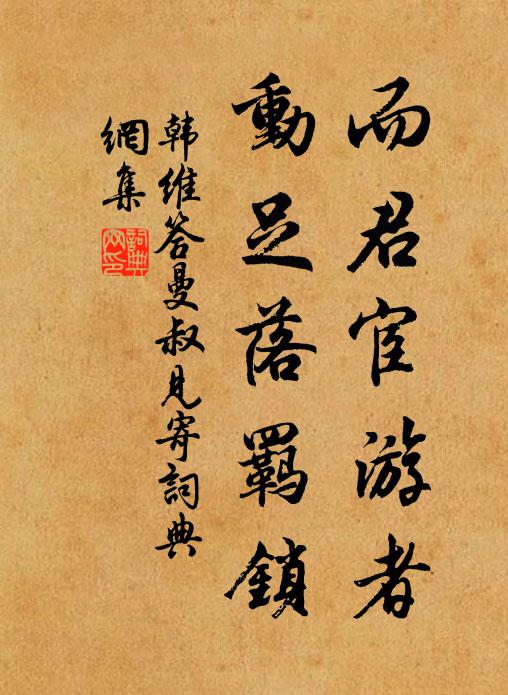 而君宦游者
動足落羈鎖
韩维答曼叔見寄詞典
網集
詞典
网印